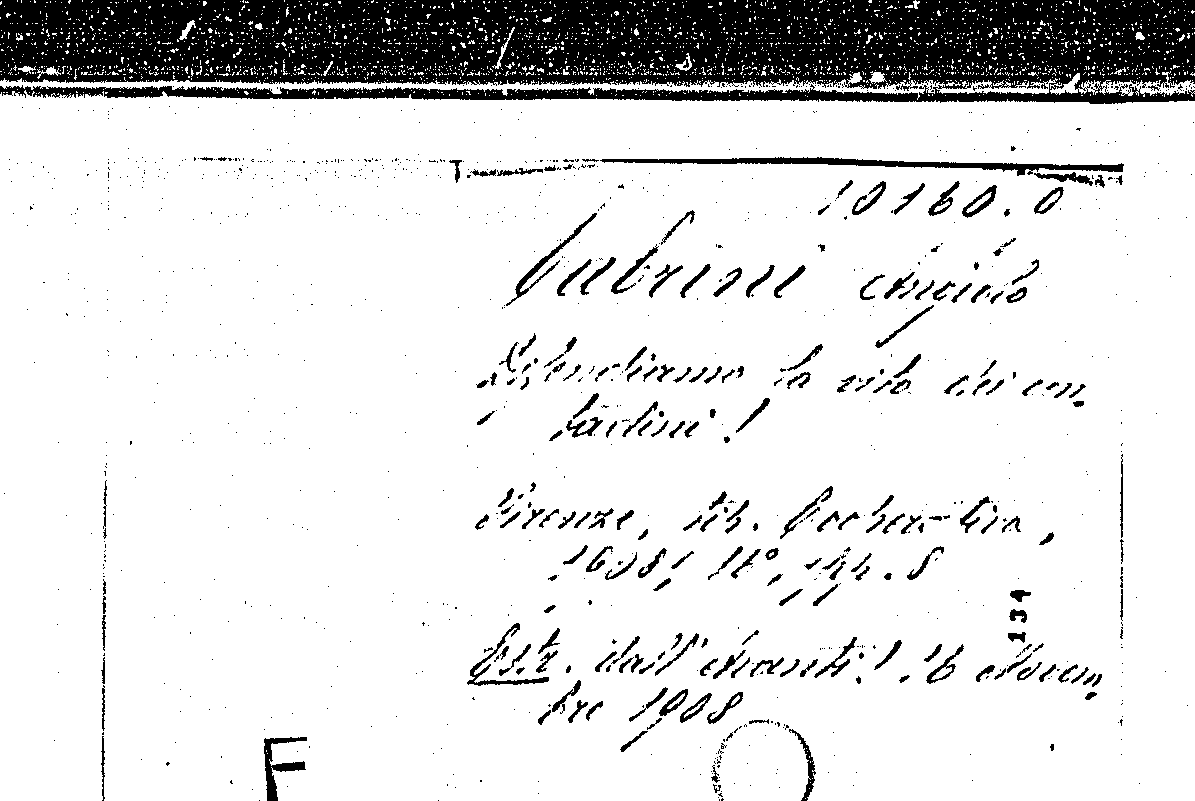 10160.0
Cabrini Angiolo
Difendiamo la vita dei con-
tadini!
Firenze, tip. Cooperativa,
1908, 16°, pp. 8
134
Estr. dall' Avanti! 16 Novem-
bre 1908
F